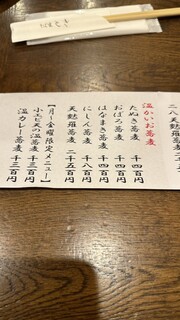 温かいお蕎麦
たぬき蕎麦 千四百円
おぼろ蕎麦 千四百円
はなまき蕎麦 千四百円
にしん蕎麦 千八百円
天麩羅蕎麦 二千五百円
【月〜金曜限定メニュー】
小エビ天の温蕎麦 千三百円
温カレー蕎麦 千三百円